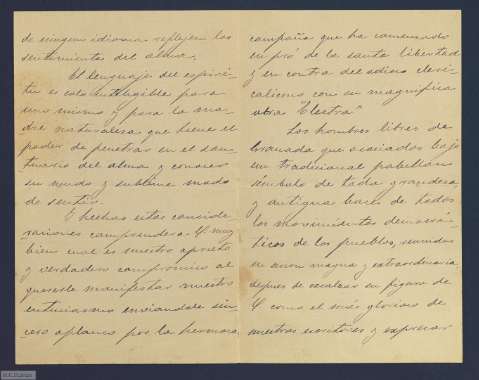 de ningun idioma reflejen los
sentimientos del alma.
El lenguaje del espiri-
tu es solo inteligible para
uno mismo y para la ma-
dre naturaleza que tiene el
poder de penetrar en el san-
tuario del alma y conocer
su mudo y sublime modo
de sentir.
Y hechas estas conside
raciones comprenderá V. muy
bien cual es nuestro aprieto
y verdadero compromiso al
quererle manifestar nuestro
entusiasmo enviandole sin-
cero aplauso por la hermosa
campaña que ha comenzado
en pró de la santa libertad
y en contra del odioso cleri-
calismo con su magnifica
obra "Electra"
Los hombres libres de
que asociados bajo
un tradicional pabellon
simbolo de toda grandeza,
y antigua base de todos
los movimientos democrá-
ticos de los pueblos, reunidos
en magna y extraordinaria
despues de
V. como el más glorioso de
nuestros escritores y expresar